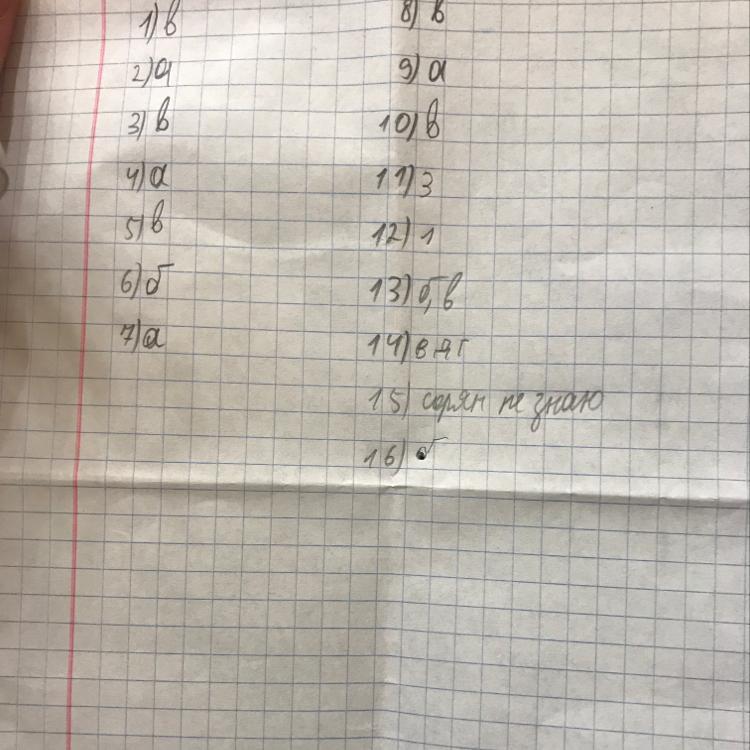 1) в
2) а
3) в
4) а
5) в
6) б
7) а
8) в
9) а
10) в
11) 3
12) 1
13) б, в
14) в д г
15) сорян не знаю
16) б